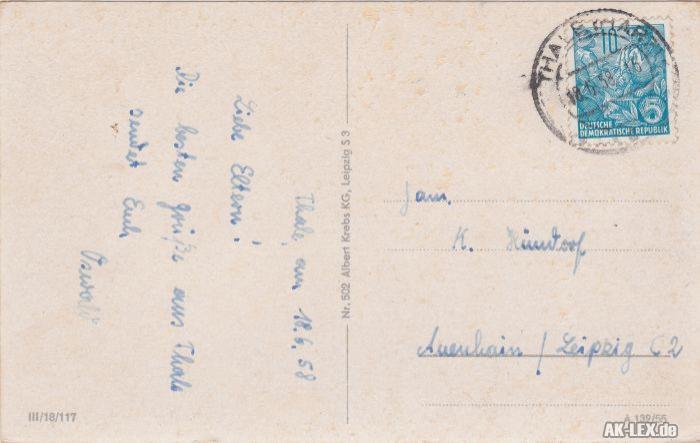 Thale, am 18.6.58
Liebe Eltern!
Die besten Grüße aus Thale
sendet Euch
Oswald
Nr. 502 Albert Krebs KG, Leipzig S 3
III/18/117
THALE (HARZ)
18.6.58
10
5
DEUTSCHE
DEMOKRATISCHE REPUBLIK
Fam.
K. Hündorf
Auenhain / Leipzig C2
A 139/55
AK-LEX.de